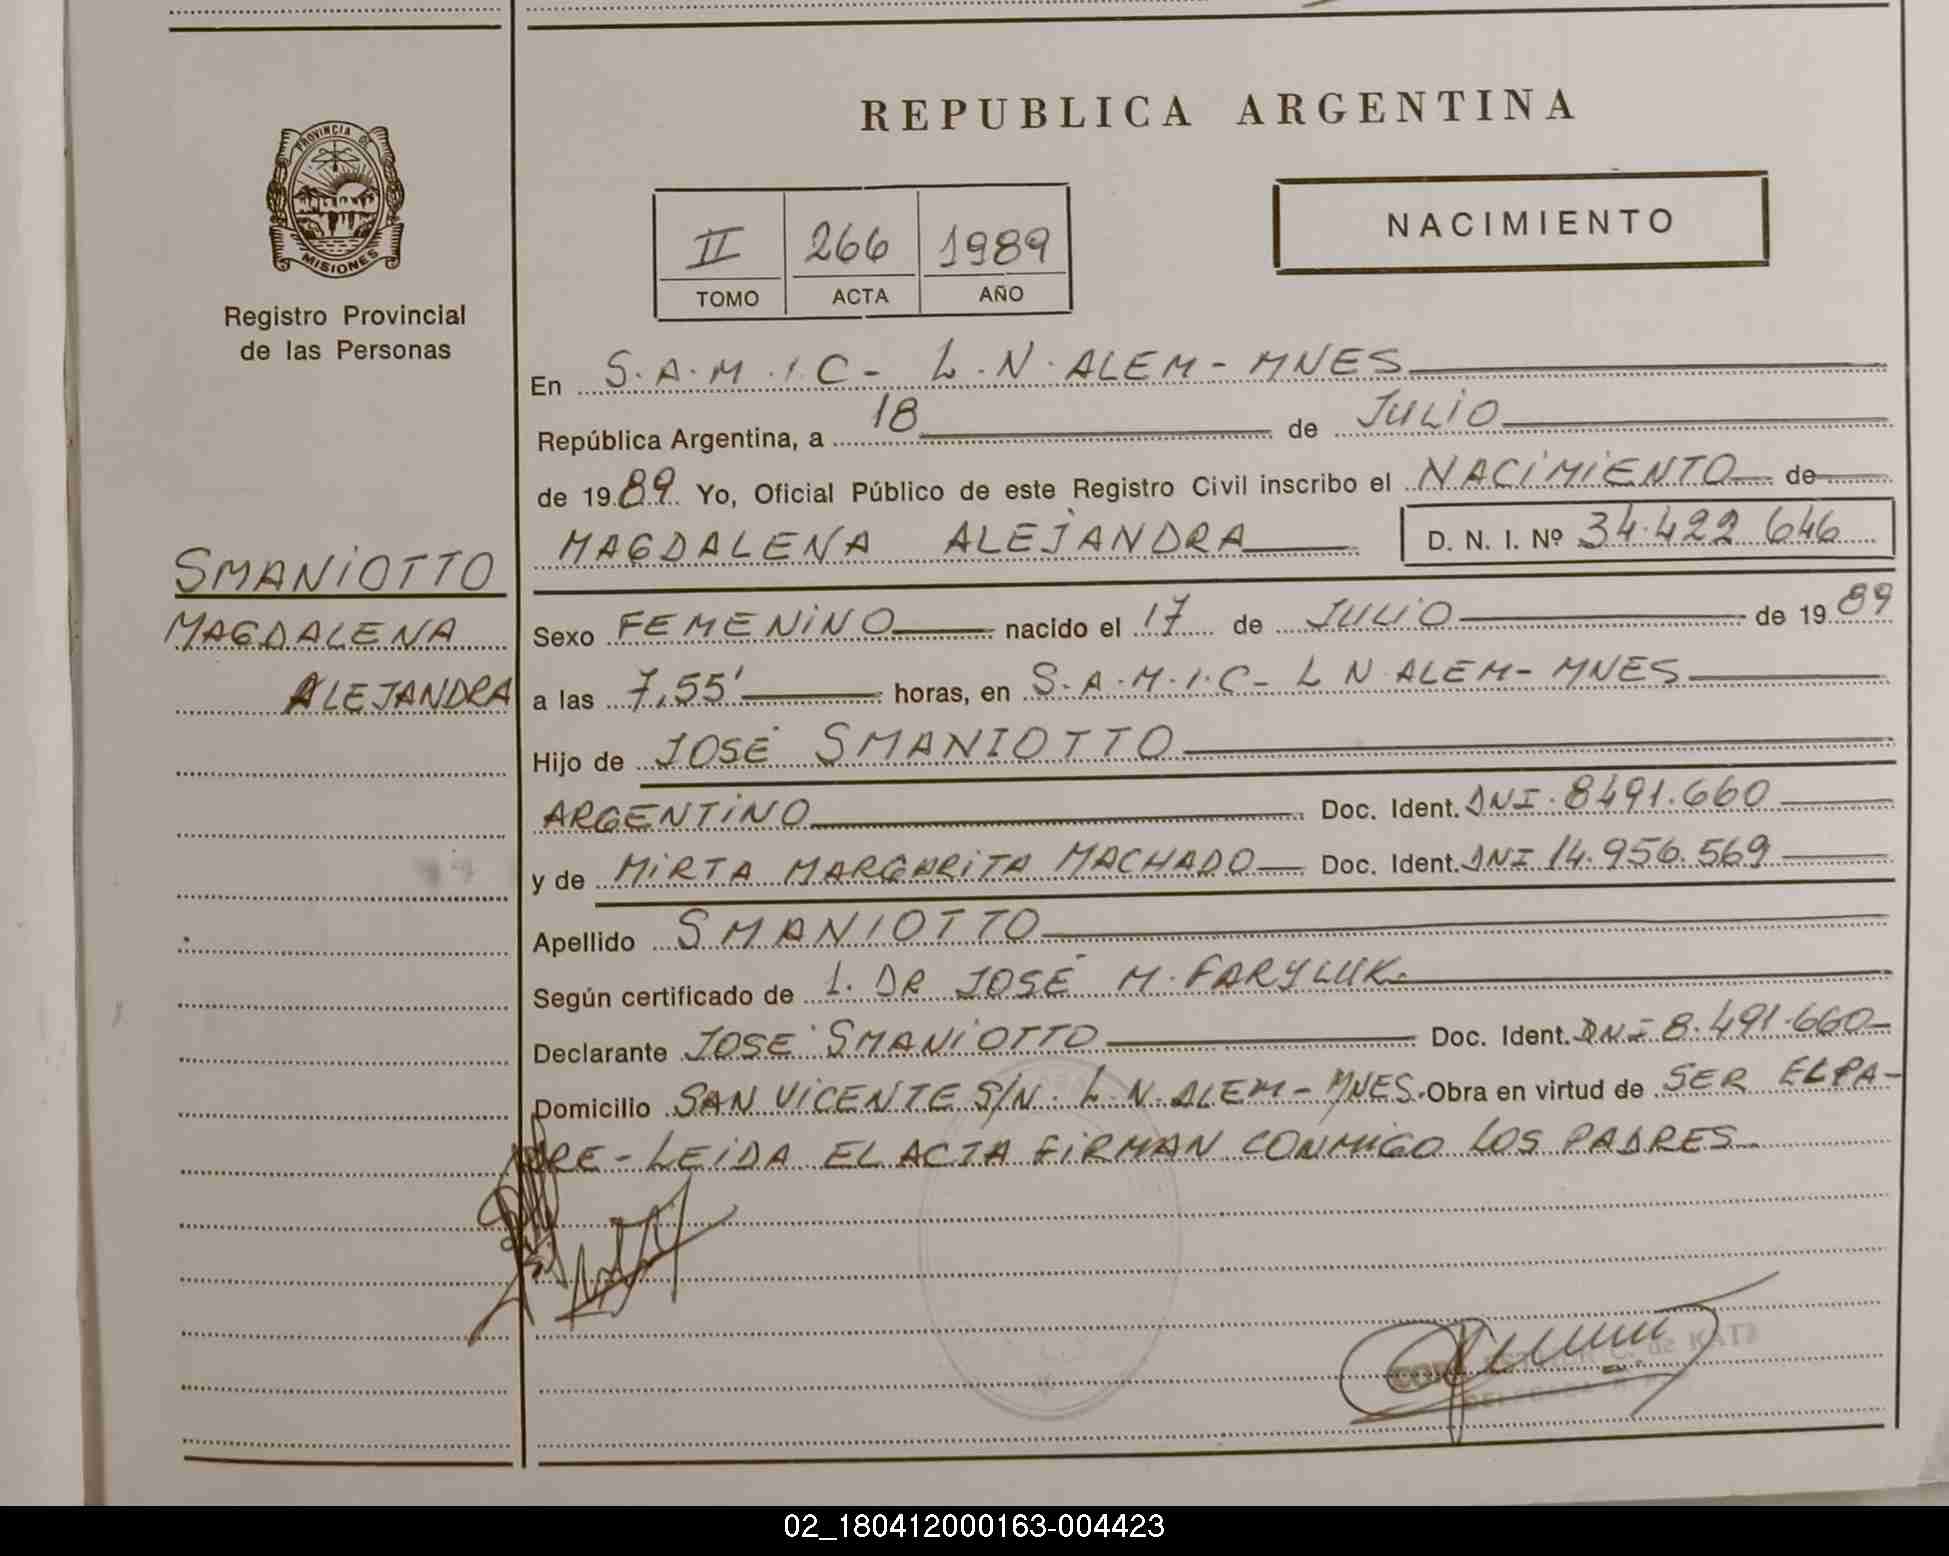 REPUBLICA ARGENTINA
PROVINCIA DE
MISIONES
Registro Provincial
de las Personas
NACIMIENTO
II 266 1989
TOMO ACTA AÑO
En S.A.M.I.C - L.N. ALEM - MNES
República Argentina, a 18 de JULIO
de 1989 Yo, Oficial Público de este Registro Civil inscribo el NACIMIENTO de
MAGDALENA ALEJANDRA D. N. I. Nº 34.422.646
SMANIOTTO
MAGDALENA
ALEJANDRA
Sexo FEMENINO nacido el 17 de JULIO de 1989
a las 7,55' horas, en S.A.M.I.C - L N ALEM - MNES
Hijo de JOSÉ SMANIOTTO
ARGENTINO Doc. Ident. DNI. 8491.660
y de MIRTA MARGARITA MACHADO Doc. Ident. DNI 14.956.569
Apellido SMANIOTTO
Según certificado de 1. DR JOSÉ M. FARYLUK
Declarante JOSE SMANIOTTO Doc. Ident. DNI 8.491.660
Domicilio SAN VICENTE S/N. L.N. ALEM - MNES. Obra en virtud de SER EL PA-
DRE - LEIDA EL ACTA FIRMAN CONMIGO LOS PADRES
de KATZ
02_180412000163-004423